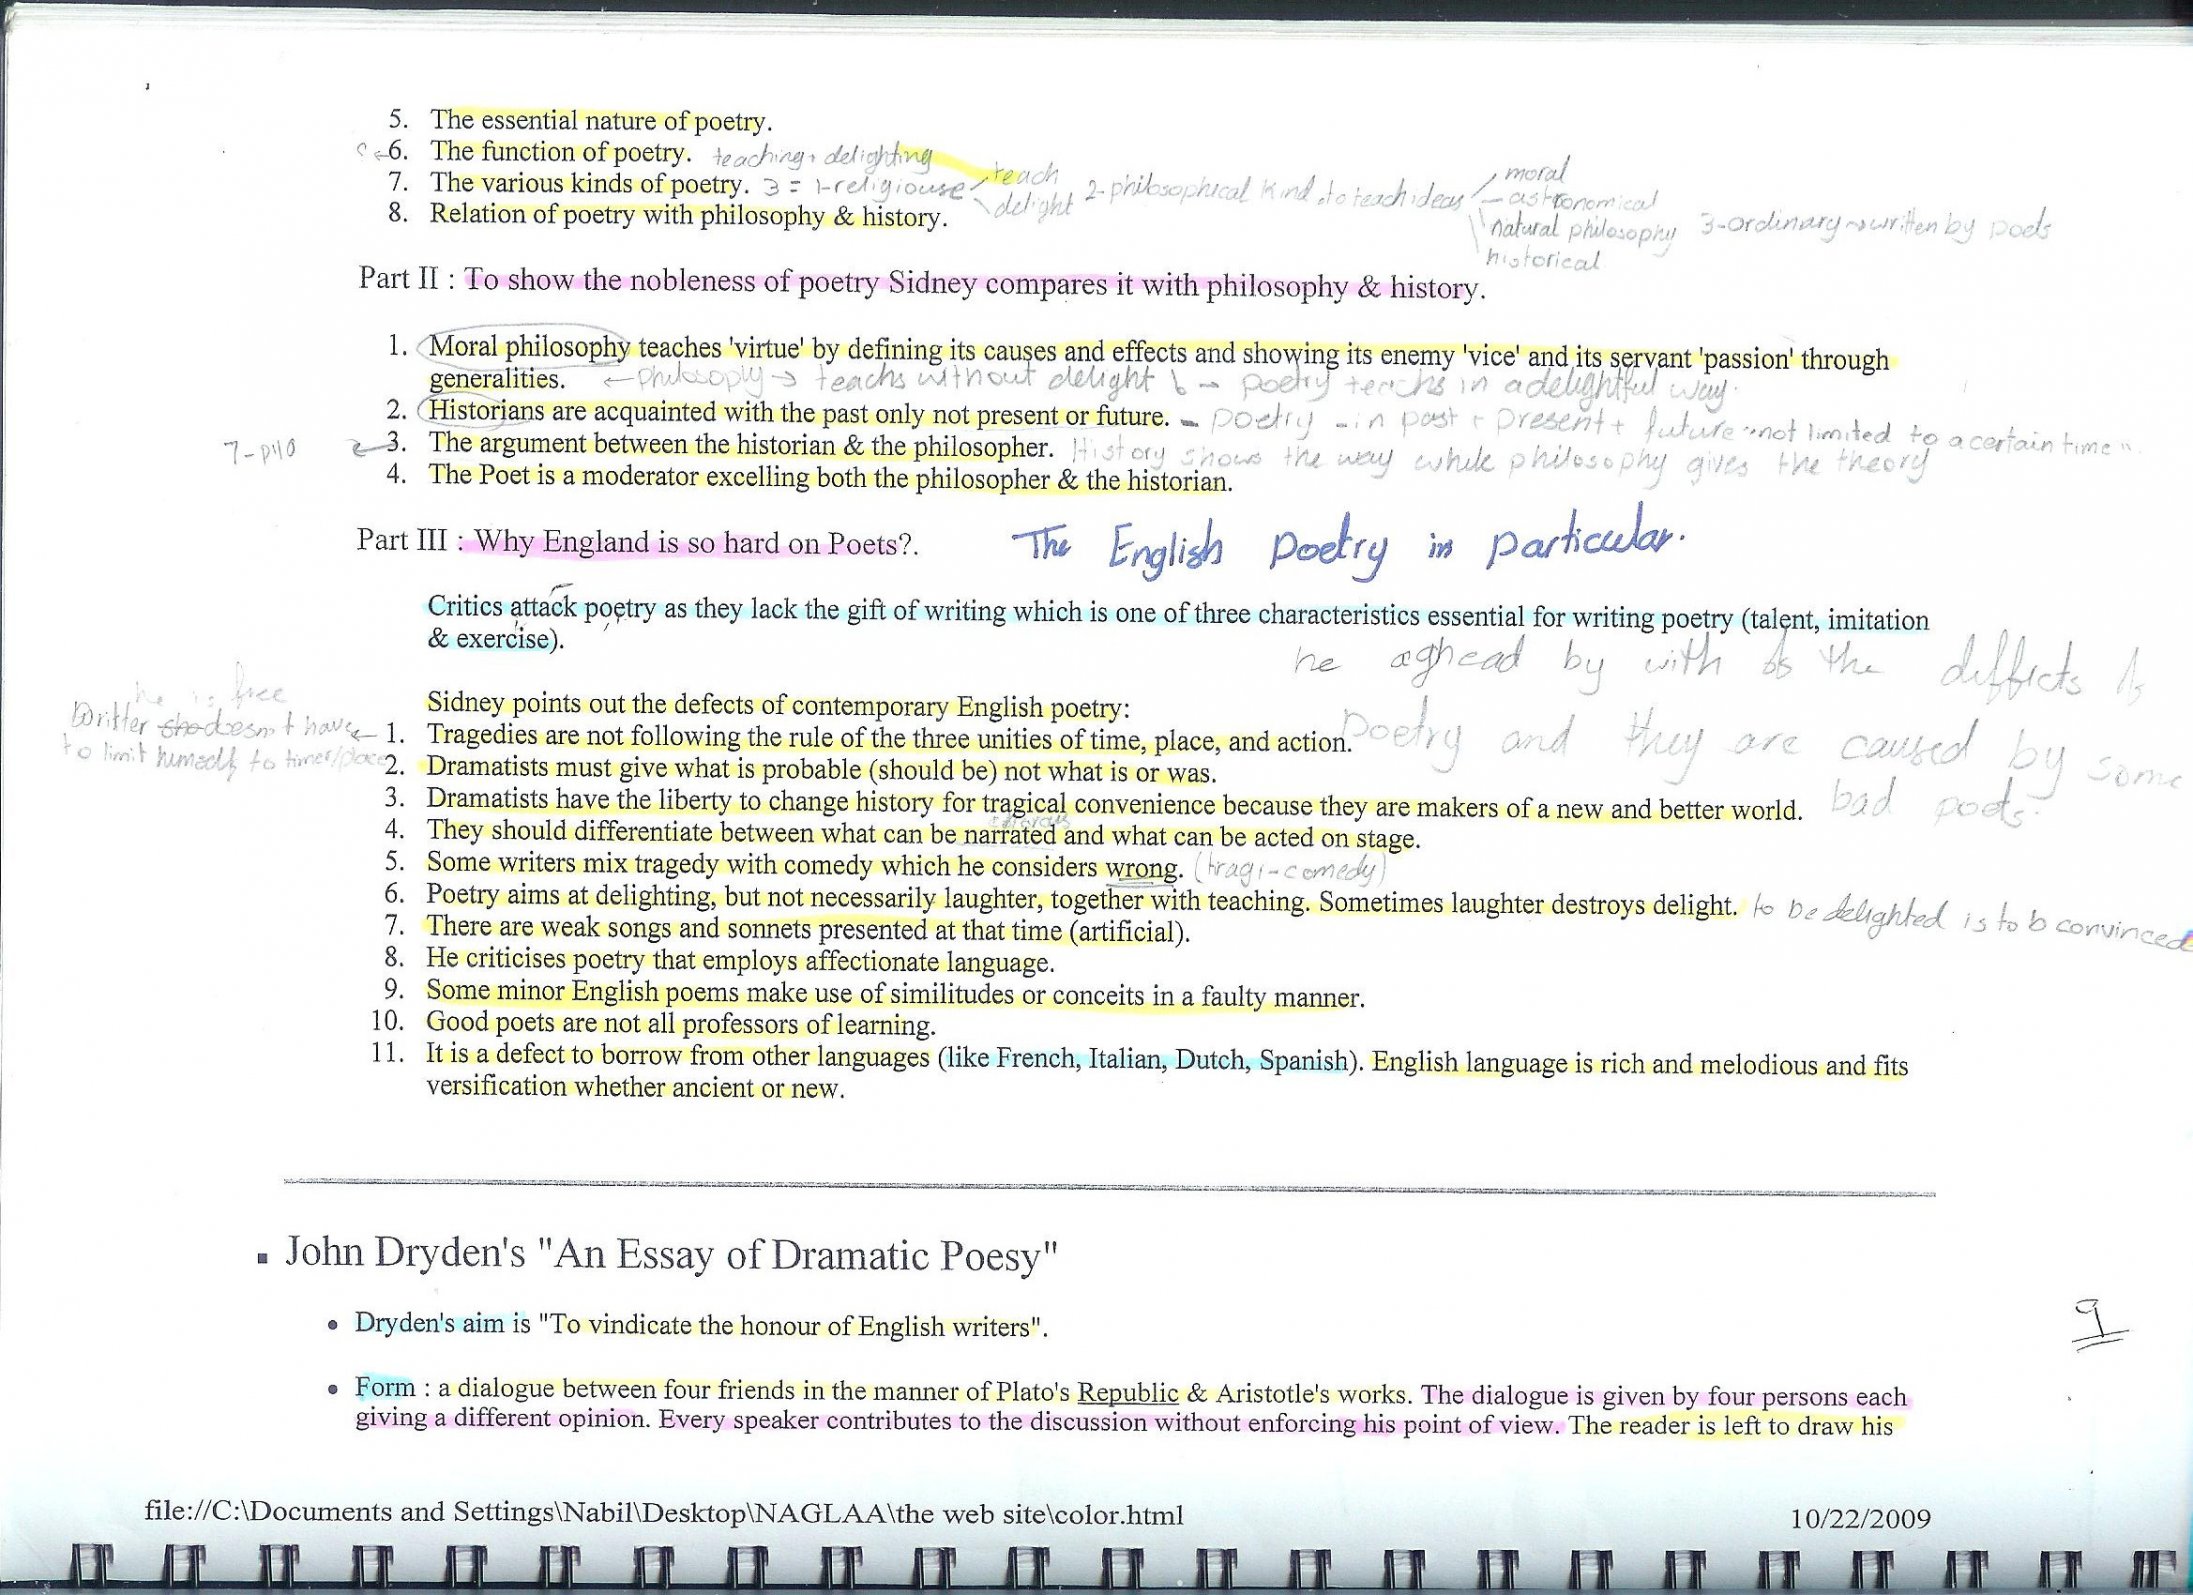 5. The essential nature of poetry.
6. The function of poetry. teaching + delighting
7. The various kinds of poetry. 3 = 1-religiouse teach delight 2-philosophical kind to teach ideas moral astronomical natural philosophy historical 3-ordinary → written by poets
8. Relation of poetry with philosophy & history.
Part II : To show the nobleness of poetry Sidney compares it with philosophy & history.
1. Moral philosophy teaches 'virtue' by defining its causes and effects and showing its enemy 'vice' and its servant 'passion' through
generalities. ← philosoply → teachs without delight → poetry teachs in a delightful way.
2. Historians are acquainted with the past only not present or future. - poetry - in past + present + future "not limited to a certain time".
7-p110
3. The argument between the historian & the philosopher. History shows the way while philosophy gives the theory
4. The Poet is a moderator excelling both the philosopher & the historian.
Part III : Why England is so hard on Poets?. The English Poetry in particular.
Critics attack poetry as they lack the gift of writing which is one of three characteristics essential for writing poetry (talent, imitation
& exercise).
he by with the defficts
poetry and they are caused by some
bad poets.
Sidney points out the defects of contemporary English poetry:
he is free
writter doesn't have
to limit humselfy to time/place
1. Tragedies are not following the rule of the three unities of time, place, and action.
2. Dramatists must give what is probable (should be) not what is or was.
3. Dramatists have the liberty to change history for tragical convenience because they are makers of a new and better world.
4. They should differentiate between what can be narrated and what can be acted on stage.
5. Some writers mix tragedy with comedy which he considers wrong. (tragi-comedy)
6. Poetry aims at delighting, but not necessarily laughter, together with teaching. Sometimes laughter destroys delight. to be delighted is to b convinced
7. There are weak songs and sonnets presented at that time (artificial).
8. He criticises poetry that employs affectionate language.
9. Some minor English poems make use of similitudes or conceits in a faulty manner.
10. Good poets are not all professors of learning.
11. It is a defect to borrow from other languages (like French, Italian, Dutch, Spanish). English language is rich and melodious and fits
versification whether ancient or new.
▪ John Dryden's "An Essay of Dramatic Poesy"
• Dryden's aim is "To vindicate the honour of English writers".
9
• Form : a dialogue between four friends in the manner of Plato's Republic & Aristotle's works. The dialogue is given by four persons each
giving a different opinion. Every speaker contributes to the discussion without enforcing his point of view. The reader is left to draw his
file://C:\Documents and Settings\Nabil\Desktop\NAGLAA\the web site\color.html 10/22/2009